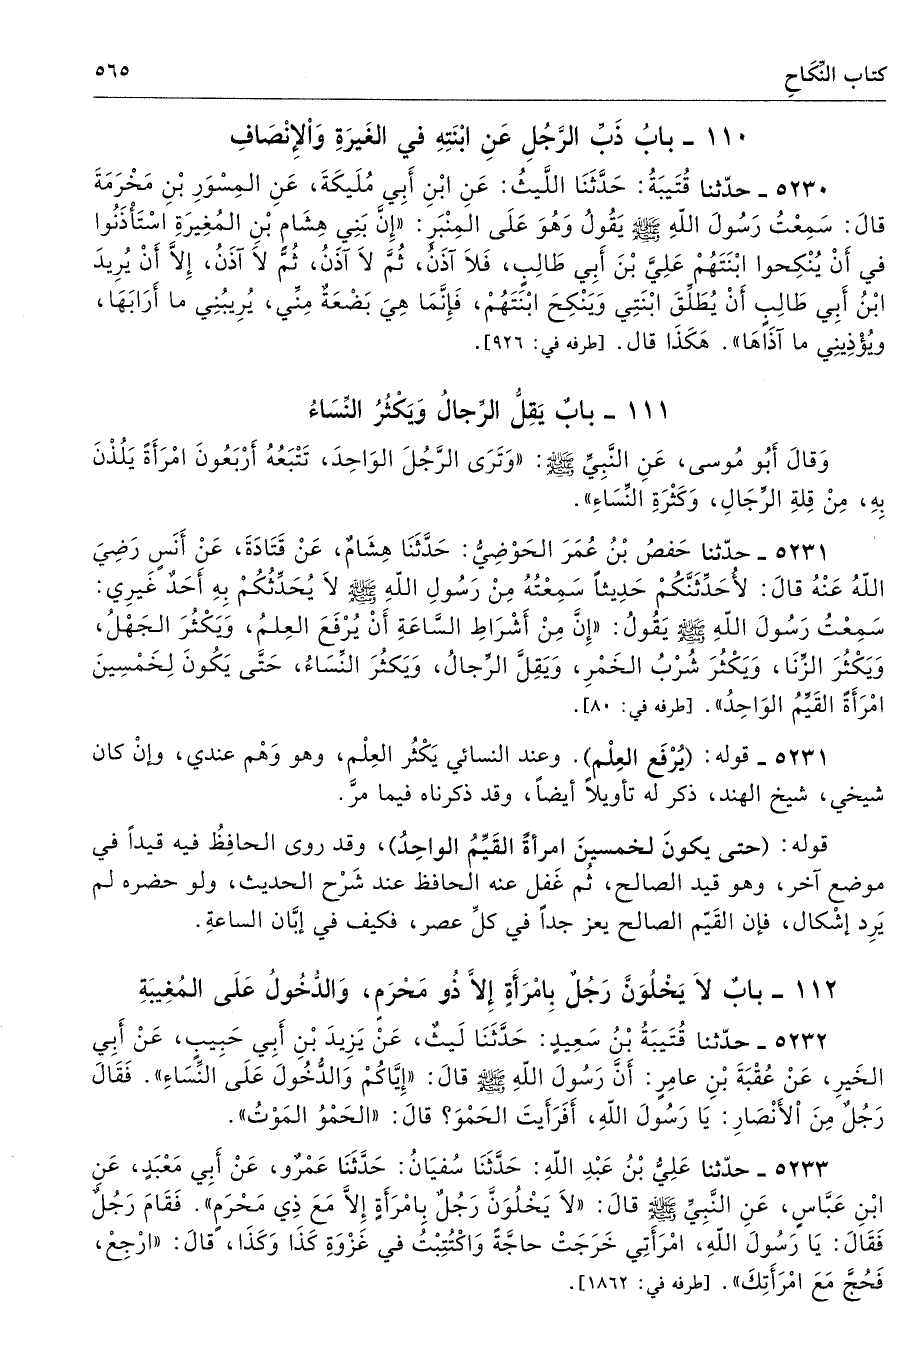 كتاب النِّكَاحِ ٥٦٥
١١٠ ـ بابُ ذَبِّ الرَّجُلِ عَنِ ابْنَتِهِ في الغَيرَةِ وَالإِنْصَافِ
٥٢٣٠ ـ حدّثنا قُتَيبَةُ: حَدَّثَنَا اللَّيثُ: عَنِ ابْنِ أَبِي مُلَيكَةَ، عَنِ المِسْوَرِ بْنِ مَخْرَمَةَ
قالَ: سَمِعْتُ رَسُولَ اللَّهِ ﷺ يَقُولُ وَهُوَ عَلَى المِنْبَرِ: «إِنَّ بَنِي هِشَامِ بْنِ المُغِيرَةِ اسْتَأْذَنُوا
في أَنْ يُنْكِحوا ابْنَتَهُمْ عَلِيَّ بْنَ أَبِي طَالِبٍ، فَلاَ آذَنُ، ثُمَّ لاَ آذَنُ، ثُمَّ لاَ آذَنُ، إِلاَّ أَنْ يُرِيدَ
ابْنُ أَبِي طَالِبٍ أَنْ يُطَلِّقَ ابْنَتِي وَيَنْكِحَ ابْنَتَهُمْ، فَإِنَّمَا هِيَ بَضْعَةٌ مِنِّي، يُرِيبُنِي ما أَرَابَهَا،
ويُؤْذِيني ما آذَاهَا». هَكَذَا قال. [طرفه في: ٩٢٦].
١١١ ـ بابٌ يَقِلُّ الرِّجالُ وَيَكْثُرُ النِّسَاءُ
وَقالَ أَبُو مُوسى، عَنِ النَّبِيِّ ﷺ: «وَتَرَى الرَّجُلَ الوَاحِدَ، تَتْبَعُهُ أَرْبَعُونَ امْرَأَةً يَلُذْنَ
بِهِ، مِنْ قِلةِ الرِّجَالِ، وَكَثْرَةِ النِّسَاءِ».
٥٢٣١ ـ حدّثنا حَفصُ بْنُ عُمَرَ الحَوْضِيُّ: حَدَّثَنَا هِشَامٌ، عَنْ قَتَادَةَ، عَنْ أَنَسٍ رَضِيَ
اللَّهُ عَنْهُ قالَ: لأُحَدِّثَنَّكُمْ حَدِيثاً سَمِعْتُهُ مِنْ رَسُولِ اللَّهِ ﷺ لاَ يُحَدِّثُكُمْ بِهِ أَحَدٌ غَيرِي:
سَمِعْتُ رَسُولَ اللَّهِ ﷺ يَقُولُ: «إِنَّ مِنْ أَشْرَاطِ السَّاعَةِ أَنْ يُرْفَعَ العِلمُ، وَيَكْثُرَ الجَهْلُ،
وَيَكْثُرَ الزِّنَا، وَيَكْثُرَ شُرْبُ الخَمْرِ، وَيَقِلَّ الرِّجالُ، وَيَكثُرَ النِّسَاءُ، حَتَّى يَكُونَ لِخَمْسِينَ
امْرَأَةً القَيِّمُ الوَاحِدُ». [طرفه في: ٨٠].
٥٢٣١ ـ قوله: (يُرْفَع العِلْم). وعند النسائي يَكْثُر العِلْم، وهو وَهْم عندي، وإنْ كان
شيخي، شيخ الهند، ذكر له تأويلاً أيضاً، وقد ذكرناه فيما مرَّ.
قوله: (حتى يكونَ لخمسينَ امرأةً القَيِّمُ الواحِدُ)، وقد روى الحافِظُ فيه قيداً في
موضع آخر، وهو قيد الصالح، ثُم غَفل عنه الحافظ عند شَرْح الحديث، ولو حضره لم
يَرِد إشْكال، فإن القَيّم الصالح يعز جداً في كلِّ عصر، فكيف في إبَّان الساعةِ.
١١٢ ـ بابٌ لاَ يَخْلُوَنَّ رَجُلٌ بِامْرَأَةٍ إِلاَّ ذُو مَحْرَمٍ، وَالدُّخُولُ عَلَى المُغِيبَةِ
٥٢٣٢ ـ حدّثنا قُتَيبَةُ بْنُ سَعِيدٍ: حَدَّثَنَا لَيثٌ، عَنْ يَزِيدَ بْنِ أَبِي حَبِيبٍ، عَنْ أَبِي
الخَيرِ، عَنْ عُقْبَةَ بْنِ عامِرٍ: أَنَّ رَسُولَ اللَّهِ ﷺ قالَ: «إِيَّاكُمْ وَالدُّخُولَ عَلَى النِّسَاءِ». فَقَالَ
رَجُلٌ مِنَ الأَنْصَارِ: يَا رَسُولَ اللَّهِ، أَفَرَأَيتَ الحَمْوَ؟ قالَ: «الحَمْوُ المَوْتُ».
٥٢٣٣ ـ حدّثنا عَلِيُّ بْنُ عَبْدِ اللَّهِ: حَدَّثَنَا سُفيَانُ: حَدَّثَنَا عَمْرٌو، عَنْ أَبِي مَعْبَدٍ، عَنِ
ابْنِ عَبَّاسٍ، عَنِ النَّبِيِّ ﷺ قالَ: «لاَ يَخْلُوَنَّ رَجُلٌ بِامْرَأَةٍ إِلاَّ مَعَ ذِي مَحْرَمٍ». فَقَامَ رَجُلٌ
فَقَالَ: يَا رَسُولَ اللَّهِ، امْرَأَتِي خَرَجَتْ حاجَّةً وَاكْتُتِبْتُ في غَزْوَةِ كَذَا وَكَذَا، قالَ: «ارْجِعْ،
فَحُجَّ مَعَ امْرَأَتِكَ». [طرفه في: ١٨٦٢].